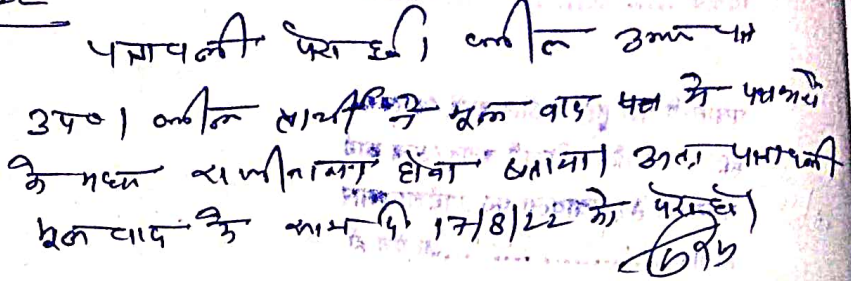 पत्रावली पेश हुई। वकील उभय पक्ष
उप०। वकील प्रार्थी ने मूल वाद पत्र में पक्षकारों
के मध्य राजीनामा होना बताया। अतः पत्रावली
मूल वाद के साथ दि 17/8/22 को पेश हो।